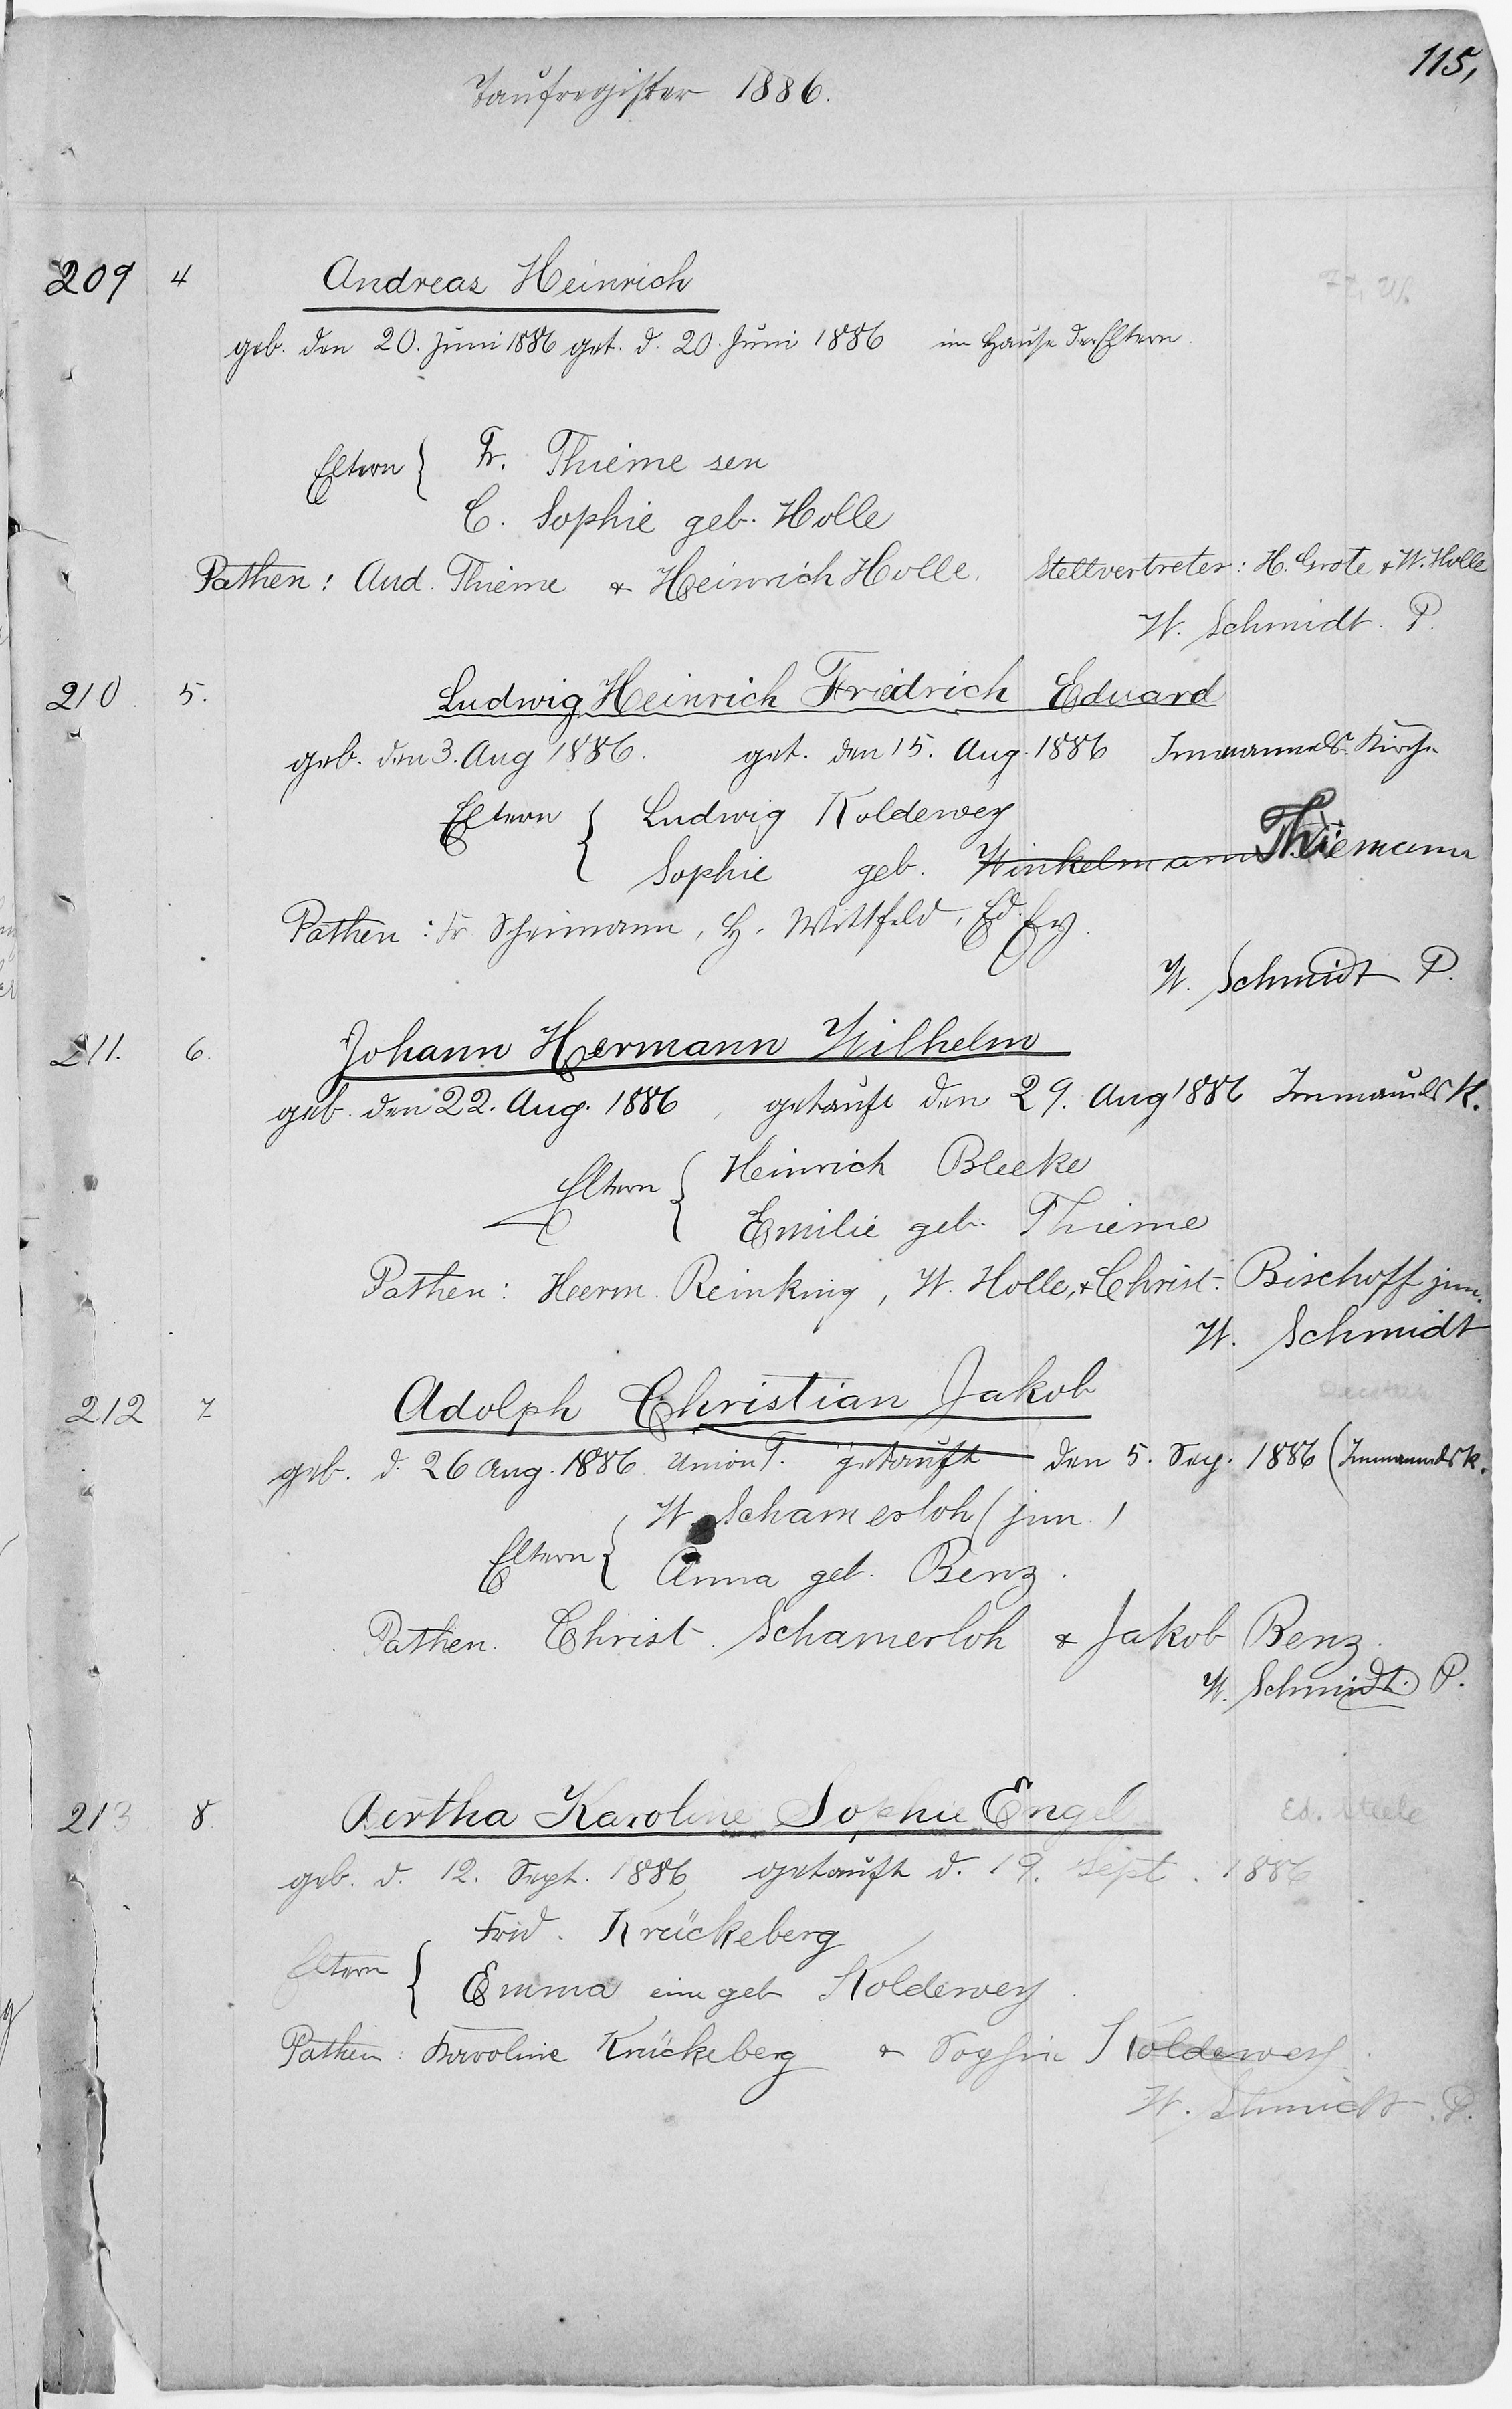 115,
Taufregister 1886.
209 4 Andreas Heinrich
geb. den 20. Juni 1886 get. d. 20. Juni 1886 im Hause der Eltern.
Eltern { Fr. Thieme sen
C. Sophie geb. Holle
Pathen: And. Thieme & Heinrich Holle. Stellvertreter: H. Grote & W. Holle
W. Schmidt. P.
210 5. Ludwig Heinrich Friedrich Eduard
geb. den 3. Aug 1886. get. den 15. Aug. 1886 Immanuels-Kirche
Eltern { Ludwig Koldewey
Sophie geb. Winkelmann Thiemann
Pathen: Fr H. Wittfeld, Ed. Ey.
W. Schmidt P.
211. 6. Johann Hermann Wilhelm
geb. den 22. Aug. 1886, getauft den 29. Aug 1886 Immanuels K.
Eltern { Heinrich Bleeke
Emilie geb. Thieme
Pathen: Heerm. Reinking, W. Holle, & Christ. Bischoff jun.
W. Schmidt
212 7 Adolph Christian Jakob
geb. d. 26 Aug. 1886 Union T. getauft den 5. Sep. 1886 (Immanuels K.
W. Schamerloh (jun.)
Eltern { Anna geb. Benz.
Pathen. Christ. Schamerloh & Jakob Benz.
W. Schmidt. P.
213 8. Bertha Karoline Sophie Engel
Ed. Steele
geb. d. 12. Sept. 1886, getauft d. 19. Sept. 1886
Frid. Krückeberg
Eltern { Emma eine geb Koldewey.
Pathen: Karoline Krückeberg & Sophie Koldewey.
W. Schmidt. P.